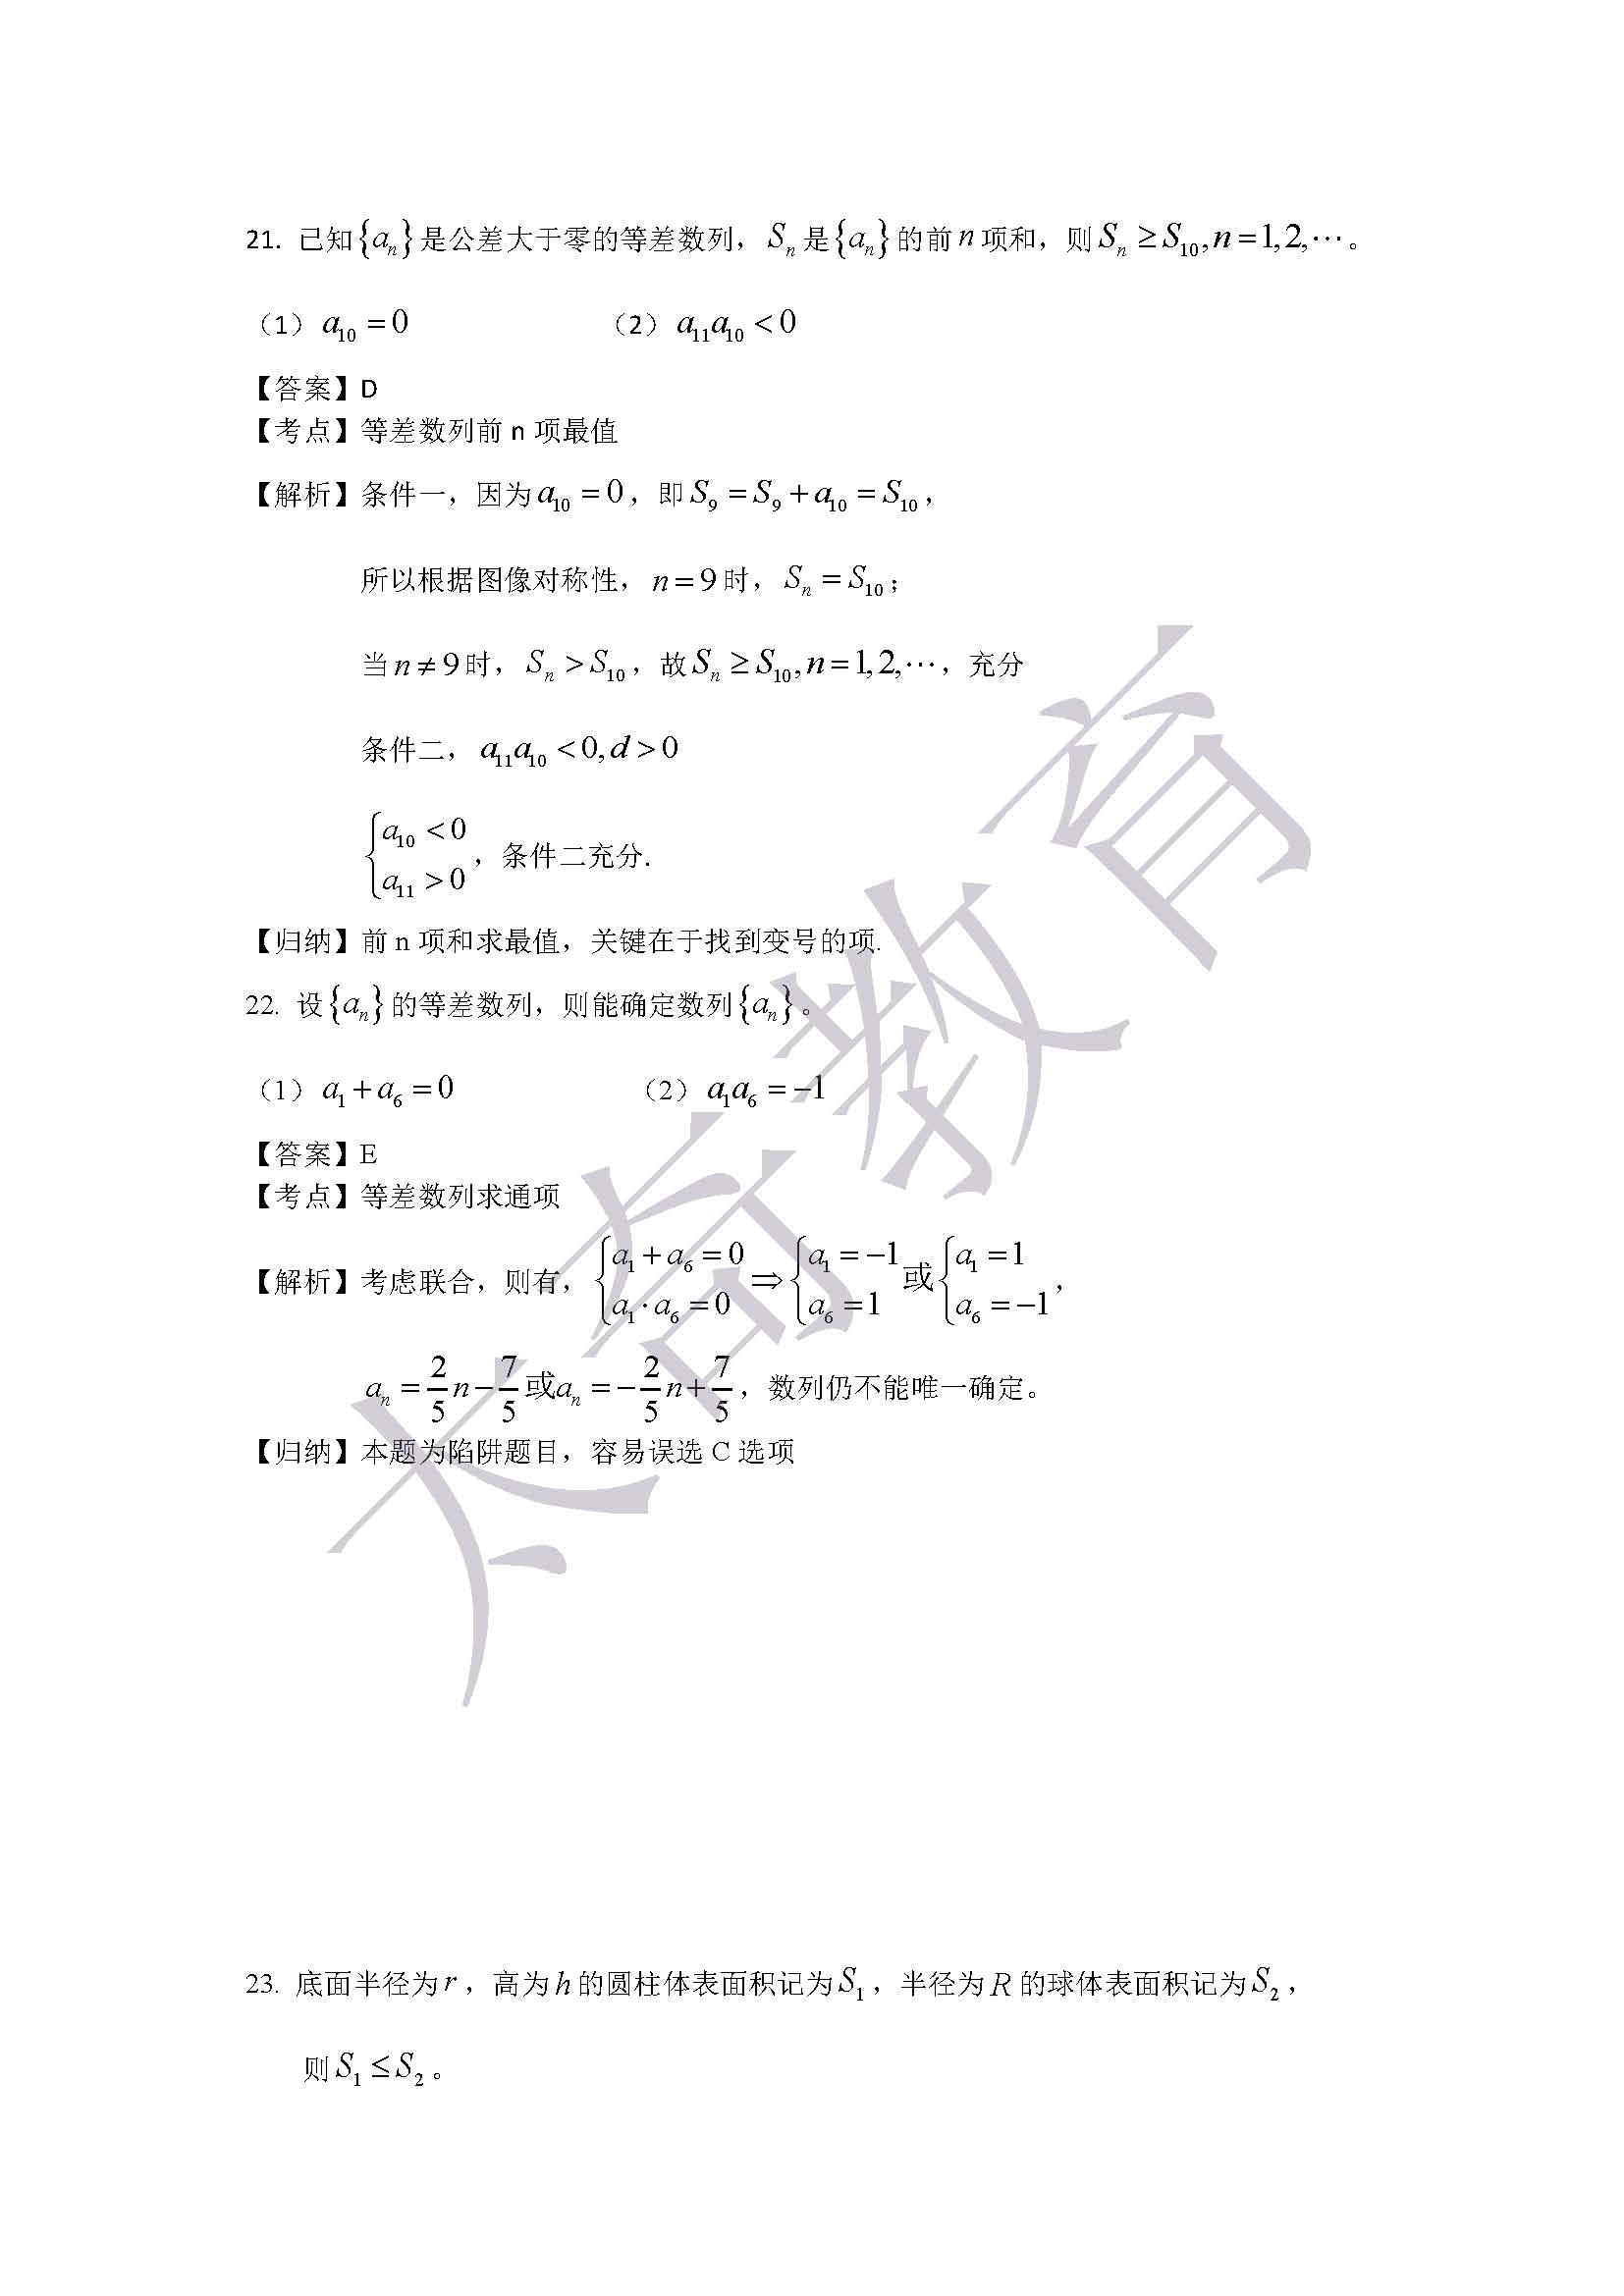 21. 已知{aₙ}是公差大于零的等差数列，Sₙ是{aₙ}的前n项和，则Sₙ ≥ S₁₀, n = 1, 2, ⋯。
（1）a₁₀ = 0 （2）a₁₁a₁₀ < 0
【答案】D
【考点】等差数列前 n 项最值
【解析】条件一，因为a₁₀ = 0，即S₉ = S₉ + a₁₀ = S₁₀，
所以根据图像对称性，n = 9时，Sₙ = S₁₀；
当n ≠ 9时，Sₙ > S₁₀，故Sₙ ≥ S₁₀, n = 1, 2, ⋯，充分
条件二，a₁₁a₁₀ < 0, d > 0
{a₁₀ < 0
a₁₁ > 0，条件二充分.
【归纳】前 n 项和求最值，关键在于找到变号的项.
22. 设{aₙ}的等差数列，则能确定数列{aₙ}。
（1）a₁ + a₆ = 0 （2）a₁a₆ = −1
【答案】E
【考点】等差数列求通项
【解析】考虑联合，则有，{a₁ + a₆ = 0, a₁ · a₆ = 0 ⇒ {a₁ = −1, a₆ = 1 或 {a₁ = 1, a₆ = −1，
aₙ = 2/5 n − 7/5 或 aₙ = −2/5 n + 7/5，数列仍不能唯一确定。
【归纳】本题为陷阱题目，容易误选 C 选项
23. 底面半径为r，高为h的圆柱体表面积记为S₁，半径为R的球体表面积记为S₂，
则S₁ ≤ S₂。
太奇教育